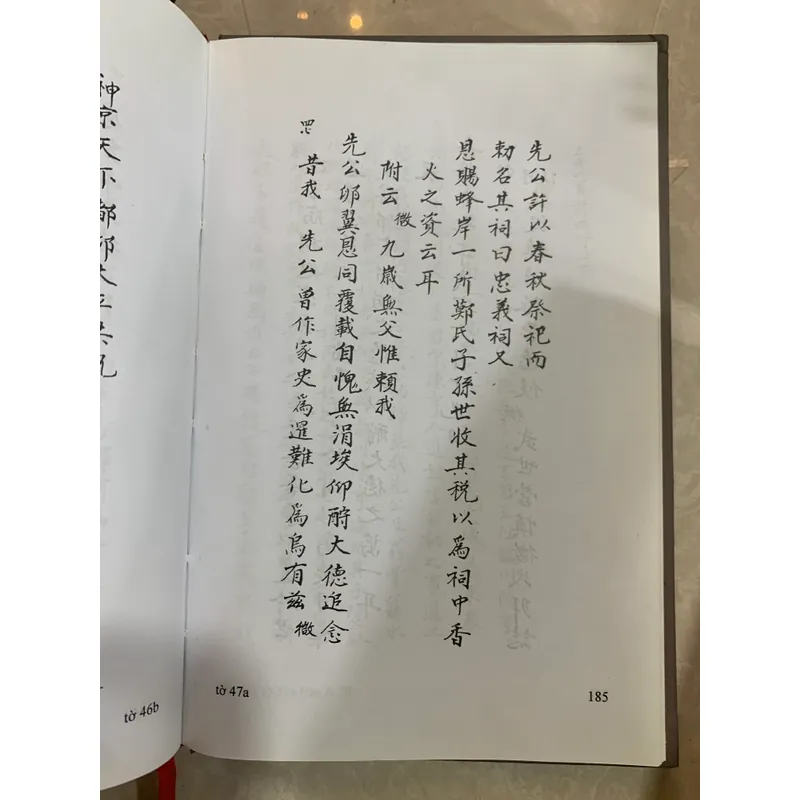 先公許以春秋祭祀而
勅名其祠曰忠義祠又
恩賜蜂岸一所鄭氏子孫世收其税以爲祠中香
火之资云耳
附云㣲九歳無父惟頼我
先公卵翼恩同覆載自愧無涓埃仰酧大德追念
昔我 先公曾作家史爲暹難化爲烏有茲㣲
神京天下
tờ 47a
185
tờ 46b